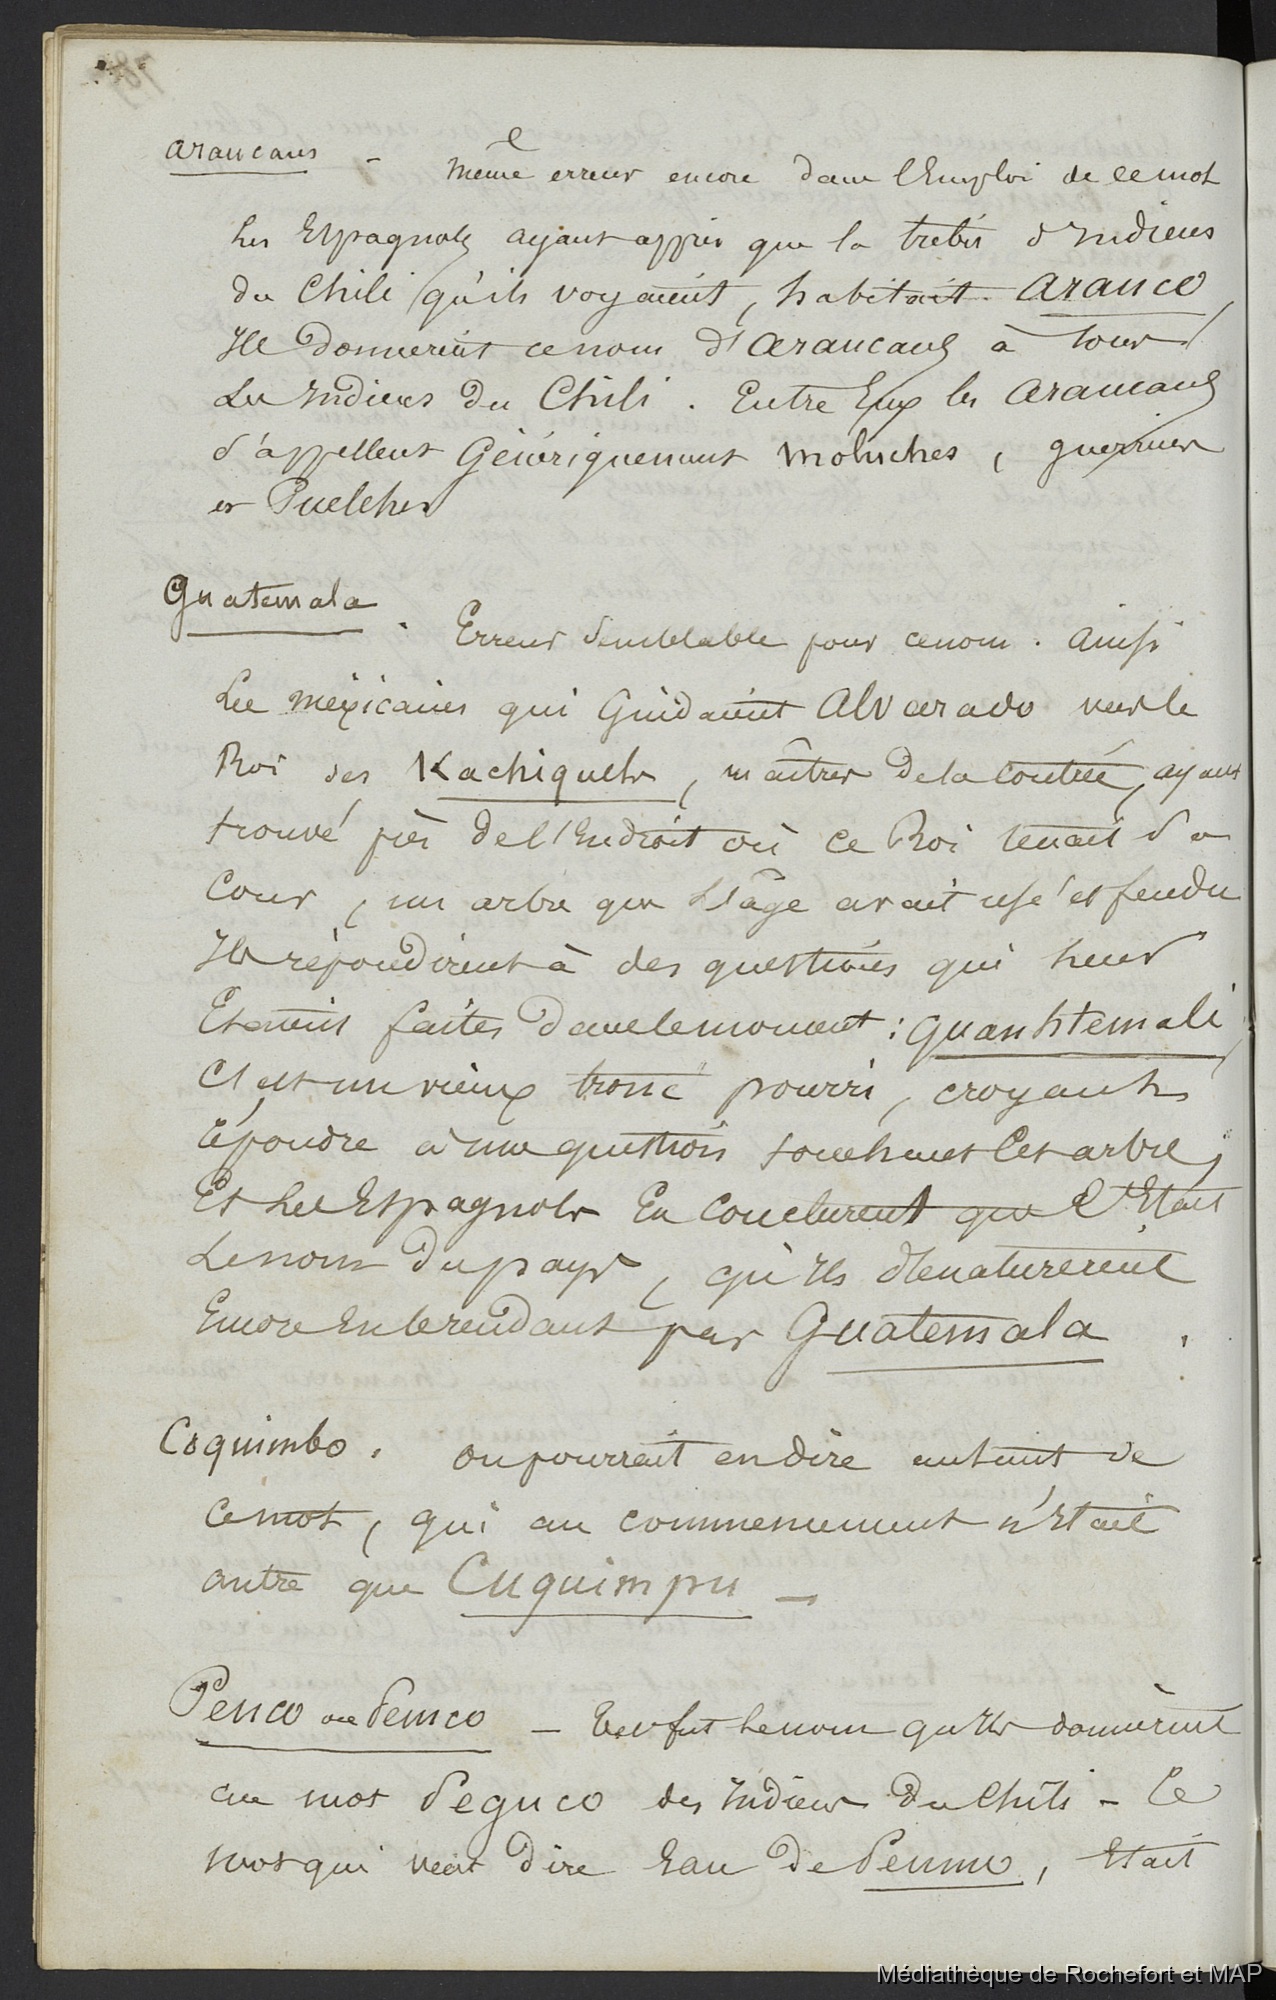 Araucans - même erreur encore dans l'Emploi de ce mot
Les Espagnols ayant appris que la tribu d'Indiens
du Chili qu'ils voyaient, habitait Arauco,
Ils donnèrent ce nom d'Araucans à tous
Les Indiens du Chili. Entre Eux les Araucans
s'appellent Génériquement Moluches, guerriers
et Puelches
Guatemala. Erreur Semblable pour ce nom. Ainsi
Les mexicains qui Guidaient Alvarado vers le
Roi des Kachiquels, maîtres de la Contrée, ayant
trouvé près de l'Endroit où ce Roi tenait sa
Cour, un arbre que l'âge avait usé et fendu
Ils répondirent à des questions qui leur
Etaient faites dans le moment : Quauhtemali
C'est un vieux tronc pourri, croyant
répondre à une question touchant Cet arbre,
Et Les Espagnols En Conclurent que C'Etait
Le nom du pays, qu'Ils dénaturèrent
Encore En le rendant par Guatemala.
Coquimbo. on pourrait en dire autant de
Ce mot, qui au commencement n'Etait
autre que Cuquimpu -
Penco ou Pemco - Tel fut le nom qu'Ils donnèrent
au mot Peguco des Indiens du Chili - Ce
mot qui veut dire Eau de Peumo, Etait
Médiathèque de Rochefort et MAP